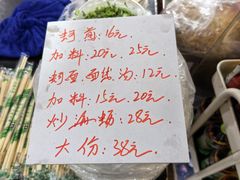 蚵煎:16元.
加料:20元.25元.
蚵豆面线沟:12元.
加料:15元.20元.
炒面线:28元.
大份:38元.